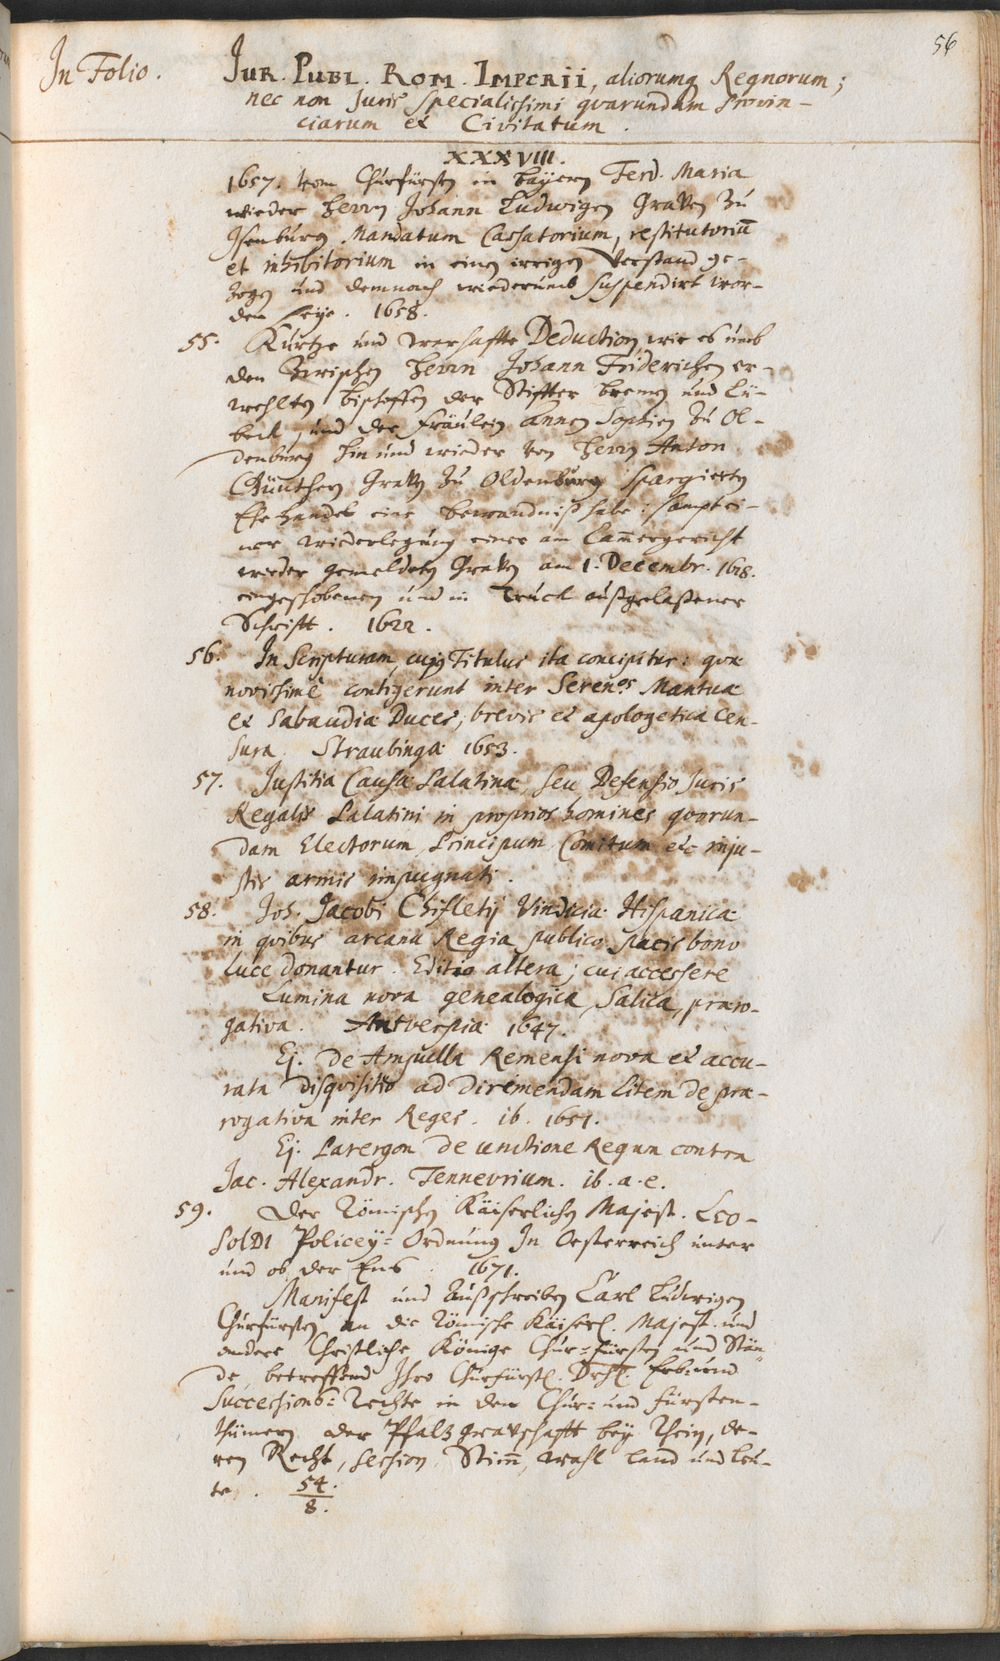 56
In Folio.
JUR. PUBL. ROM. IMPERII, aliorumq Regnorum;
nec non Juris specialissimi qvarundam Provin-
ciarum et Civitatum.
XXXVIII.
1657. vom Churfürsten in Bayern Ferd. Maria
wieder Herrn Johann Ludwigen Graven zu
Isenburg Mandatum Cassatorium, restitutoriū
et inhibitorium in einen irrigen Verstand ge-
zogen und demnach wiederumb suspendirt wor-
den seye. 1658.
55. Kurtze und warhaffte Deduction, wie es umb
den zwischen Herrn Johann Friderichen er-
wehlten Bischoffen der Stiffter Bremen und Lü-
beck, und der Fräulein Annen Sophien zu Ol-
denburg hin und wieder von Herrn Anton
Günthern Graven zu Oldenburg spargierten
Ehehandel eine bewandniß habe: sampt ei-
ner wiederlegung einer am Cammergericht
wieder gemeldten Graven am 1. Decembr. 1618.
eingeschobenen und in Truck außgelaßener
Schrifft. 1622.
56. In Scripturam, cujꝰ Titulus ita concipitur: qvæ
novissimè contigerunt inter Seren.os Mantuæ
et Sabaudiæ Duces, brevis et apologetica Cen-
sura. Straubingæ 1653.
57. Justitia Causæ Palatinæ, seu Defensio Juris
Regalis Palatini in proprios homines qvorun-
dam Electorum, Principum, Comitum etc inju-
stis armis impugnati.
58. Joh. Jacobi Chifletij Vindiciæ Hispanicæ
in qvibus arcana Regia publico pacis bono
luce donantur. Editio altera; cui accessere
Lumina nova genealogica, Salica, præro-
gativa. Antverpiæ 1647.
Ej. De Ampulla Remensi nova et accu-
rata Disquisitio ad Dirimendam Litem de præ-
rogativa inter Reges. ib. 1651.
Ej. Parergon de unctione Regum contra
Jac. Alexandr. Tenneurium. ib. a. e.
59. Der Römischen Käiserlichen Majest. LEO-
POLDI Policey-Ordnung In Oesterreich unter
und ob der Ens. 1671.
Manifest und Außschreiben Carl Ludwigen
Churfürsten an die Römische Käiserl. Majest. und
andere Christliche Könige Chur-fürsten und Stän-
de, betreffend Ihro Churfürstl. Drchl. Erb- und
Successions-Rechte in den Chur- und Fürsten-
thümern der Pfaltzgravschafft bey Rhein, de-
ren Recht, Session, Stimm, wahl Land und Leu-
te. 54.
8.